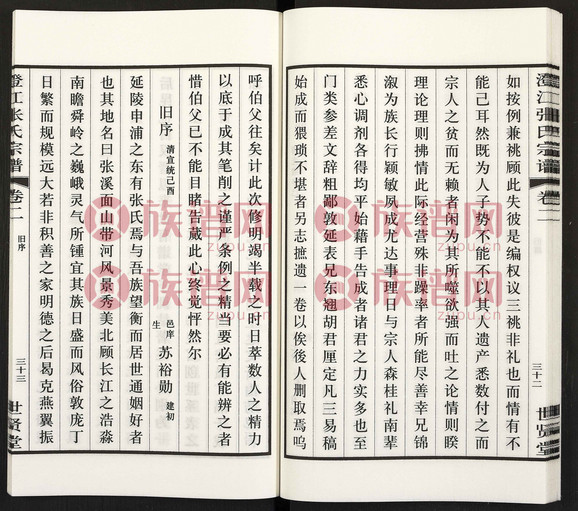 澄江张氏宗谱
卷二
三十二
世贤堂
如按例兼祧顾此失彼是编权议三祧非礼也而情有不
能己耳然既为人子势不能不以其人遗产悉数付之而
宗人之贫而无赖者闲为其所噬欲强而吐之论情则睽
理论理则拂情此际经营殊非躁率者所能尽善幸兄锦
溆为族长行颖敏夙成尤达事理日与宗人森桂礼南辈
悉心调剂各得均平始藉手告成者诸君之力实多也至
门类参差文辞粗鄙敦延表兄东翘胡君厘定凡三易稿
始成而猥琐不堪者另志摭遗一卷以俟後人删取焉呜
呼伯父往矣计此次修明竭半载之时日萃数人之精力
以底于成其笔削之谨严条例之精当要必有能辨之者
惜伯父已不能目睹告蒇此心终觉怦然尔
旧序
清宣统己酉
邑庠生
苏裕勋
建初
延陵申浦之东有张氏焉与吾族望衡而居世通姻好者
也其地名曰张溪面山带河风景秀美北顾长江之浩淼
南瞻舜岭之巍峨灵气所锺宜其族日盛而风俗敦庞丁
日繁而规模远大若非积善之家明德之后曷克燕翼振
澄江张氏宗谱
卷二
旧序
三十三
世贤堂
族谱网
zupu.cn